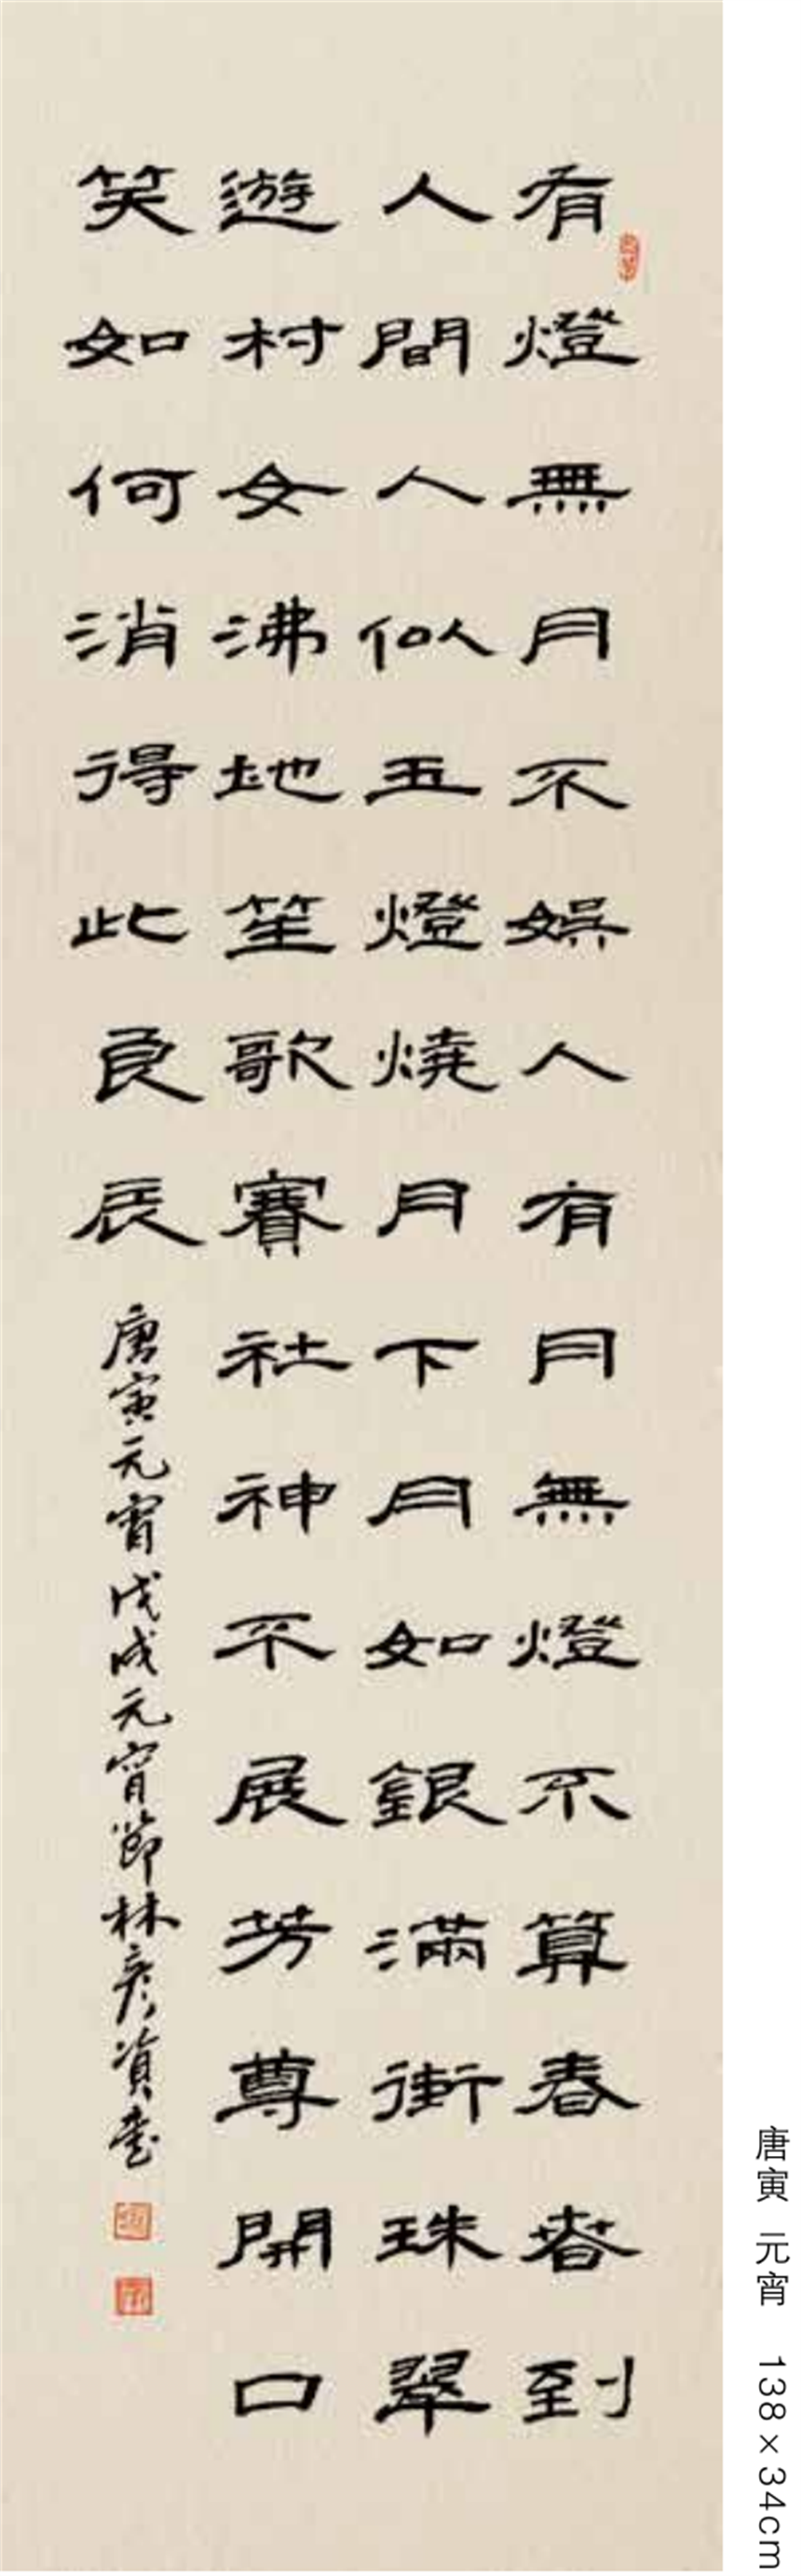 有燈無月不娛人有月無燈不算春春到
人間人似玉燈燒月下月如銀滿街珠翠
遊村女沸地笙歌賽社神不展芳尊開口
笑如何消得此良辰
唐寅元宵戊戌元宵節林彥資書
唐寅 元宵 138×34cm